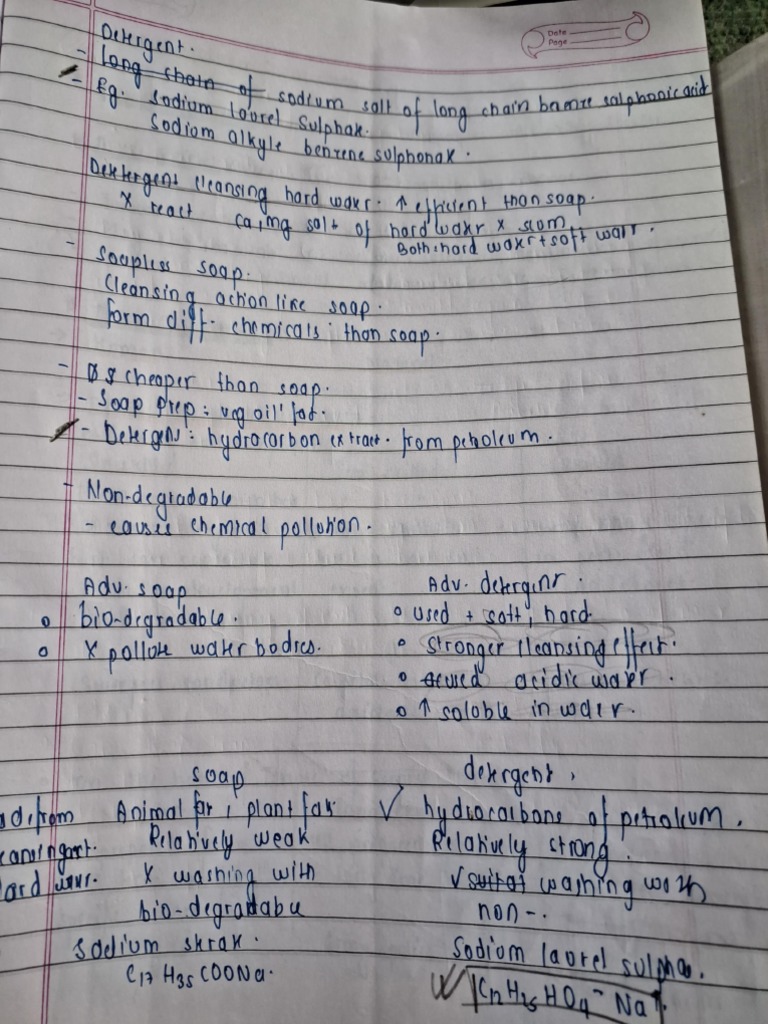 Date
Page
Detergent.
- long chain of sodium salt of long chain benzne sulphonic acid
- Eg. sodium laurel sulphate.
sodium alkyle benzene sulphonate.
Detergent cleansing hard water. ↑ efficient than soap.
x react ca, mg salt of hard water x scum
Both: hard water + soft water.
- soapless soap.
cleansing action like soap.
form diff. chemicals than soap.
- cheaper than soap.
- soap prep: veg oil/ fat.
- Detergens: hydrocarbon extract. from petroleum.
- Non-degradable
- causes chemical pollution.
Adv. soap Adv. detergent.
o bio-degradable. o used + soft, hard
o x pollute water bodies. o stronger cleansing effect.
o used acidic water.
o ↑ soluble in water.
soap detergent,
Animal fat, plant fat ✓ hydrocarbons of petroleum.
Relatively weak Relatively strong.
x washing with ✓ washing with
bio-degradable non-.
sodium strate. sodium laurel sulpha.
C17 H35 COONa. C12 H25 HO4⁻ Na⁺.